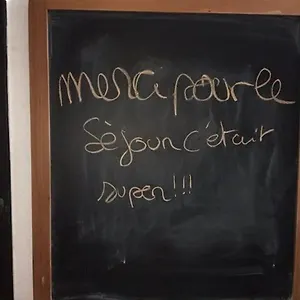 merci pour le
Séjour c'était
super!!!